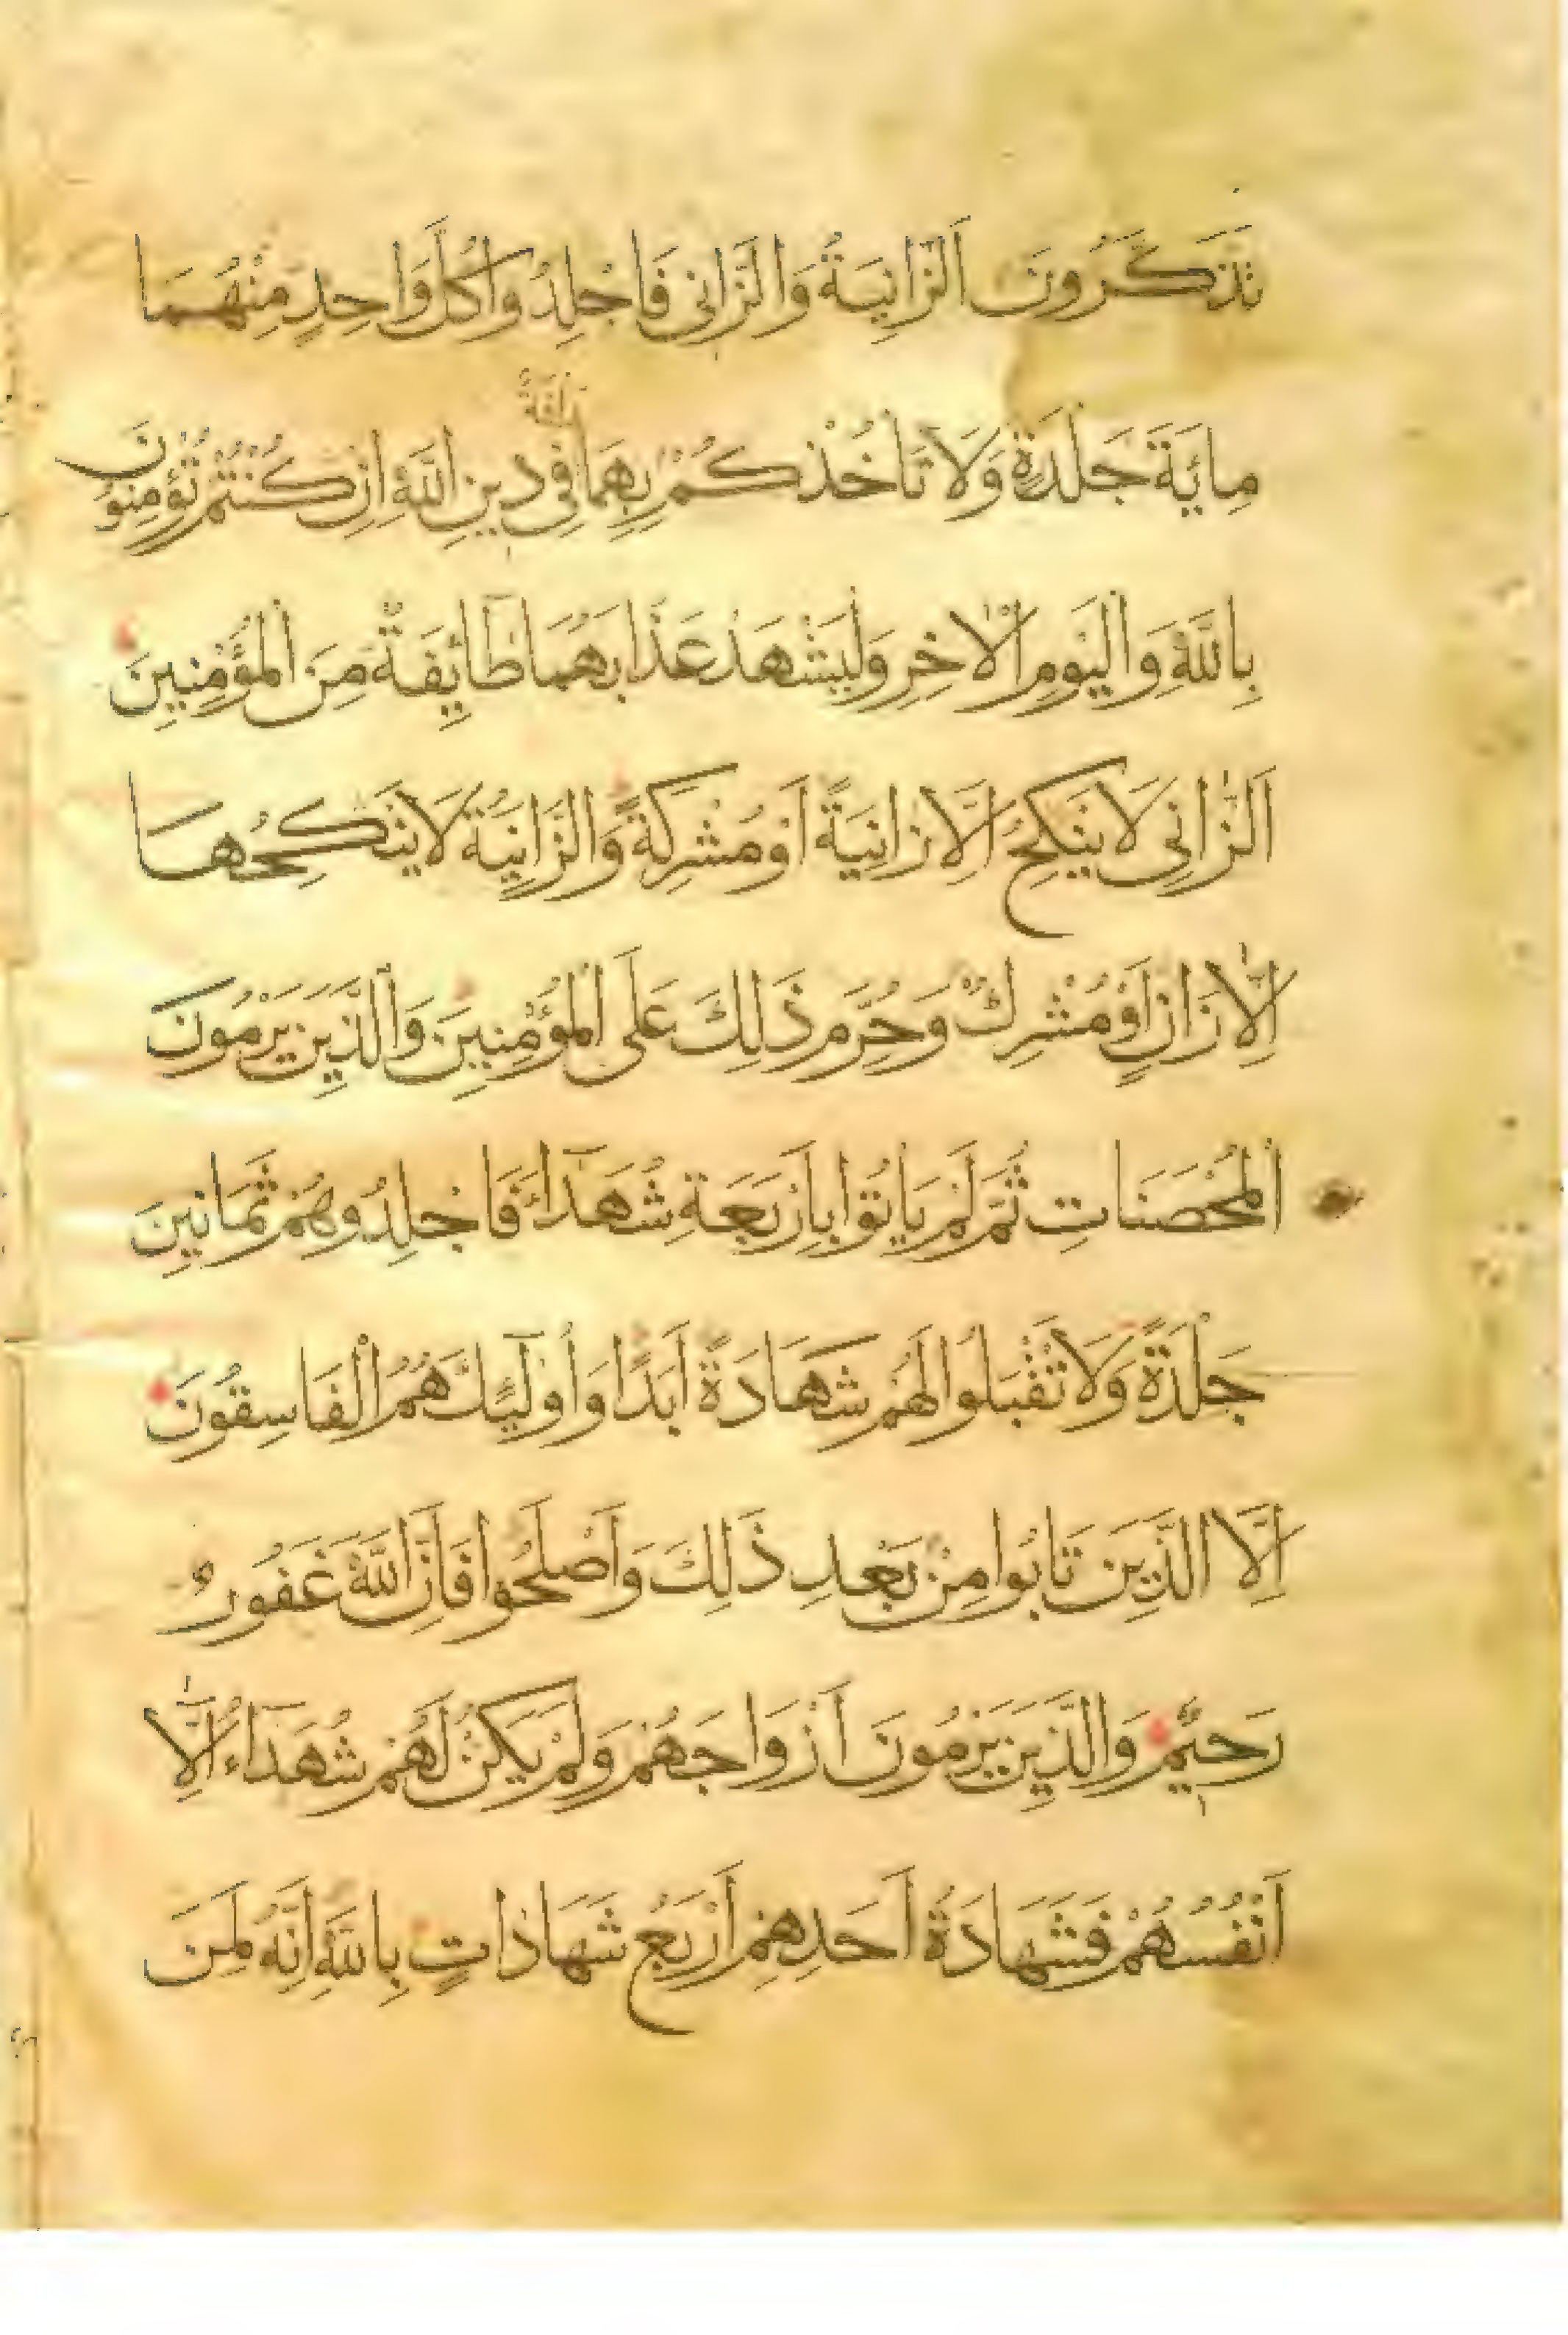 تَذَكَّرُونَ اَلزَّانِيَةُ وَالزَّانِى فَاجْلِدُواكُلَّ وَاحِدٍ مِنْهُمَا
رَافَةٌ
مِايَةَ جَلْدَةٍ وَلَا تَاخُذْكُمْ بِهِمَا فِى دِينِ اللّٰهِ اِنْ كُنْتُمْ تُؤْمِنُونَ
بِاللّٰهِ وَالْيَوْمِ الْاٰخِرِ وَلْيَشْهَدْ عَذَابَهُمَا طَآئِفَةٌ مِنَ الْمُؤْمِنِينَ
اَلزَّانِى لَا يَنْكِحُ اِلَّا زَانِيَةً اَوْ مُشْرِكَةً وَالزَّانِيَةُ لَا يَنْكِحُهَا
اِلَّا زَانٍ اَوْ مُشْرِكٌ وَحُرِّمَ ذَلِكَ عَلَى الْمُؤْمِنِينَ وَالَّذِينَ يَرْمُونَ
الْمُحْصَنَاتِ ثُمَّ لَمْ يَاتُوا بِاَرْبَعَةِ شُهَدَآءَ فَاجْلِدُوهُمْ ثَمَانِينَ
جَلْدَةً وَلَا تَقْبَلُوا لَهُمْ شَهَادَةً اَبَدًا وَاُولَٓئِكَ هُمُ الْفَاسِقُونَ
اِلَّا الَّذِينَ تَابُوا مِنْ بَعْدِ ذَلِكَ وَاَصْلَحُوا فَاِنَّ اللّٰهَ غَفُورٌ
رَحِيمٌ وَالَّذِينَ يَرْمُونَ اَزْوَاجَهُمْ وَلَمْ يَكُنْ لَهُمْ شُهَدَآءُ اِلَّآ
اَنْفُسُهُمْ فَشَهَادَةُ اَحَدِهِمْ اَرْبَعُ شَهَادَاتٍ بِاللّٰهِ اِنَّهُ لَمِنَ